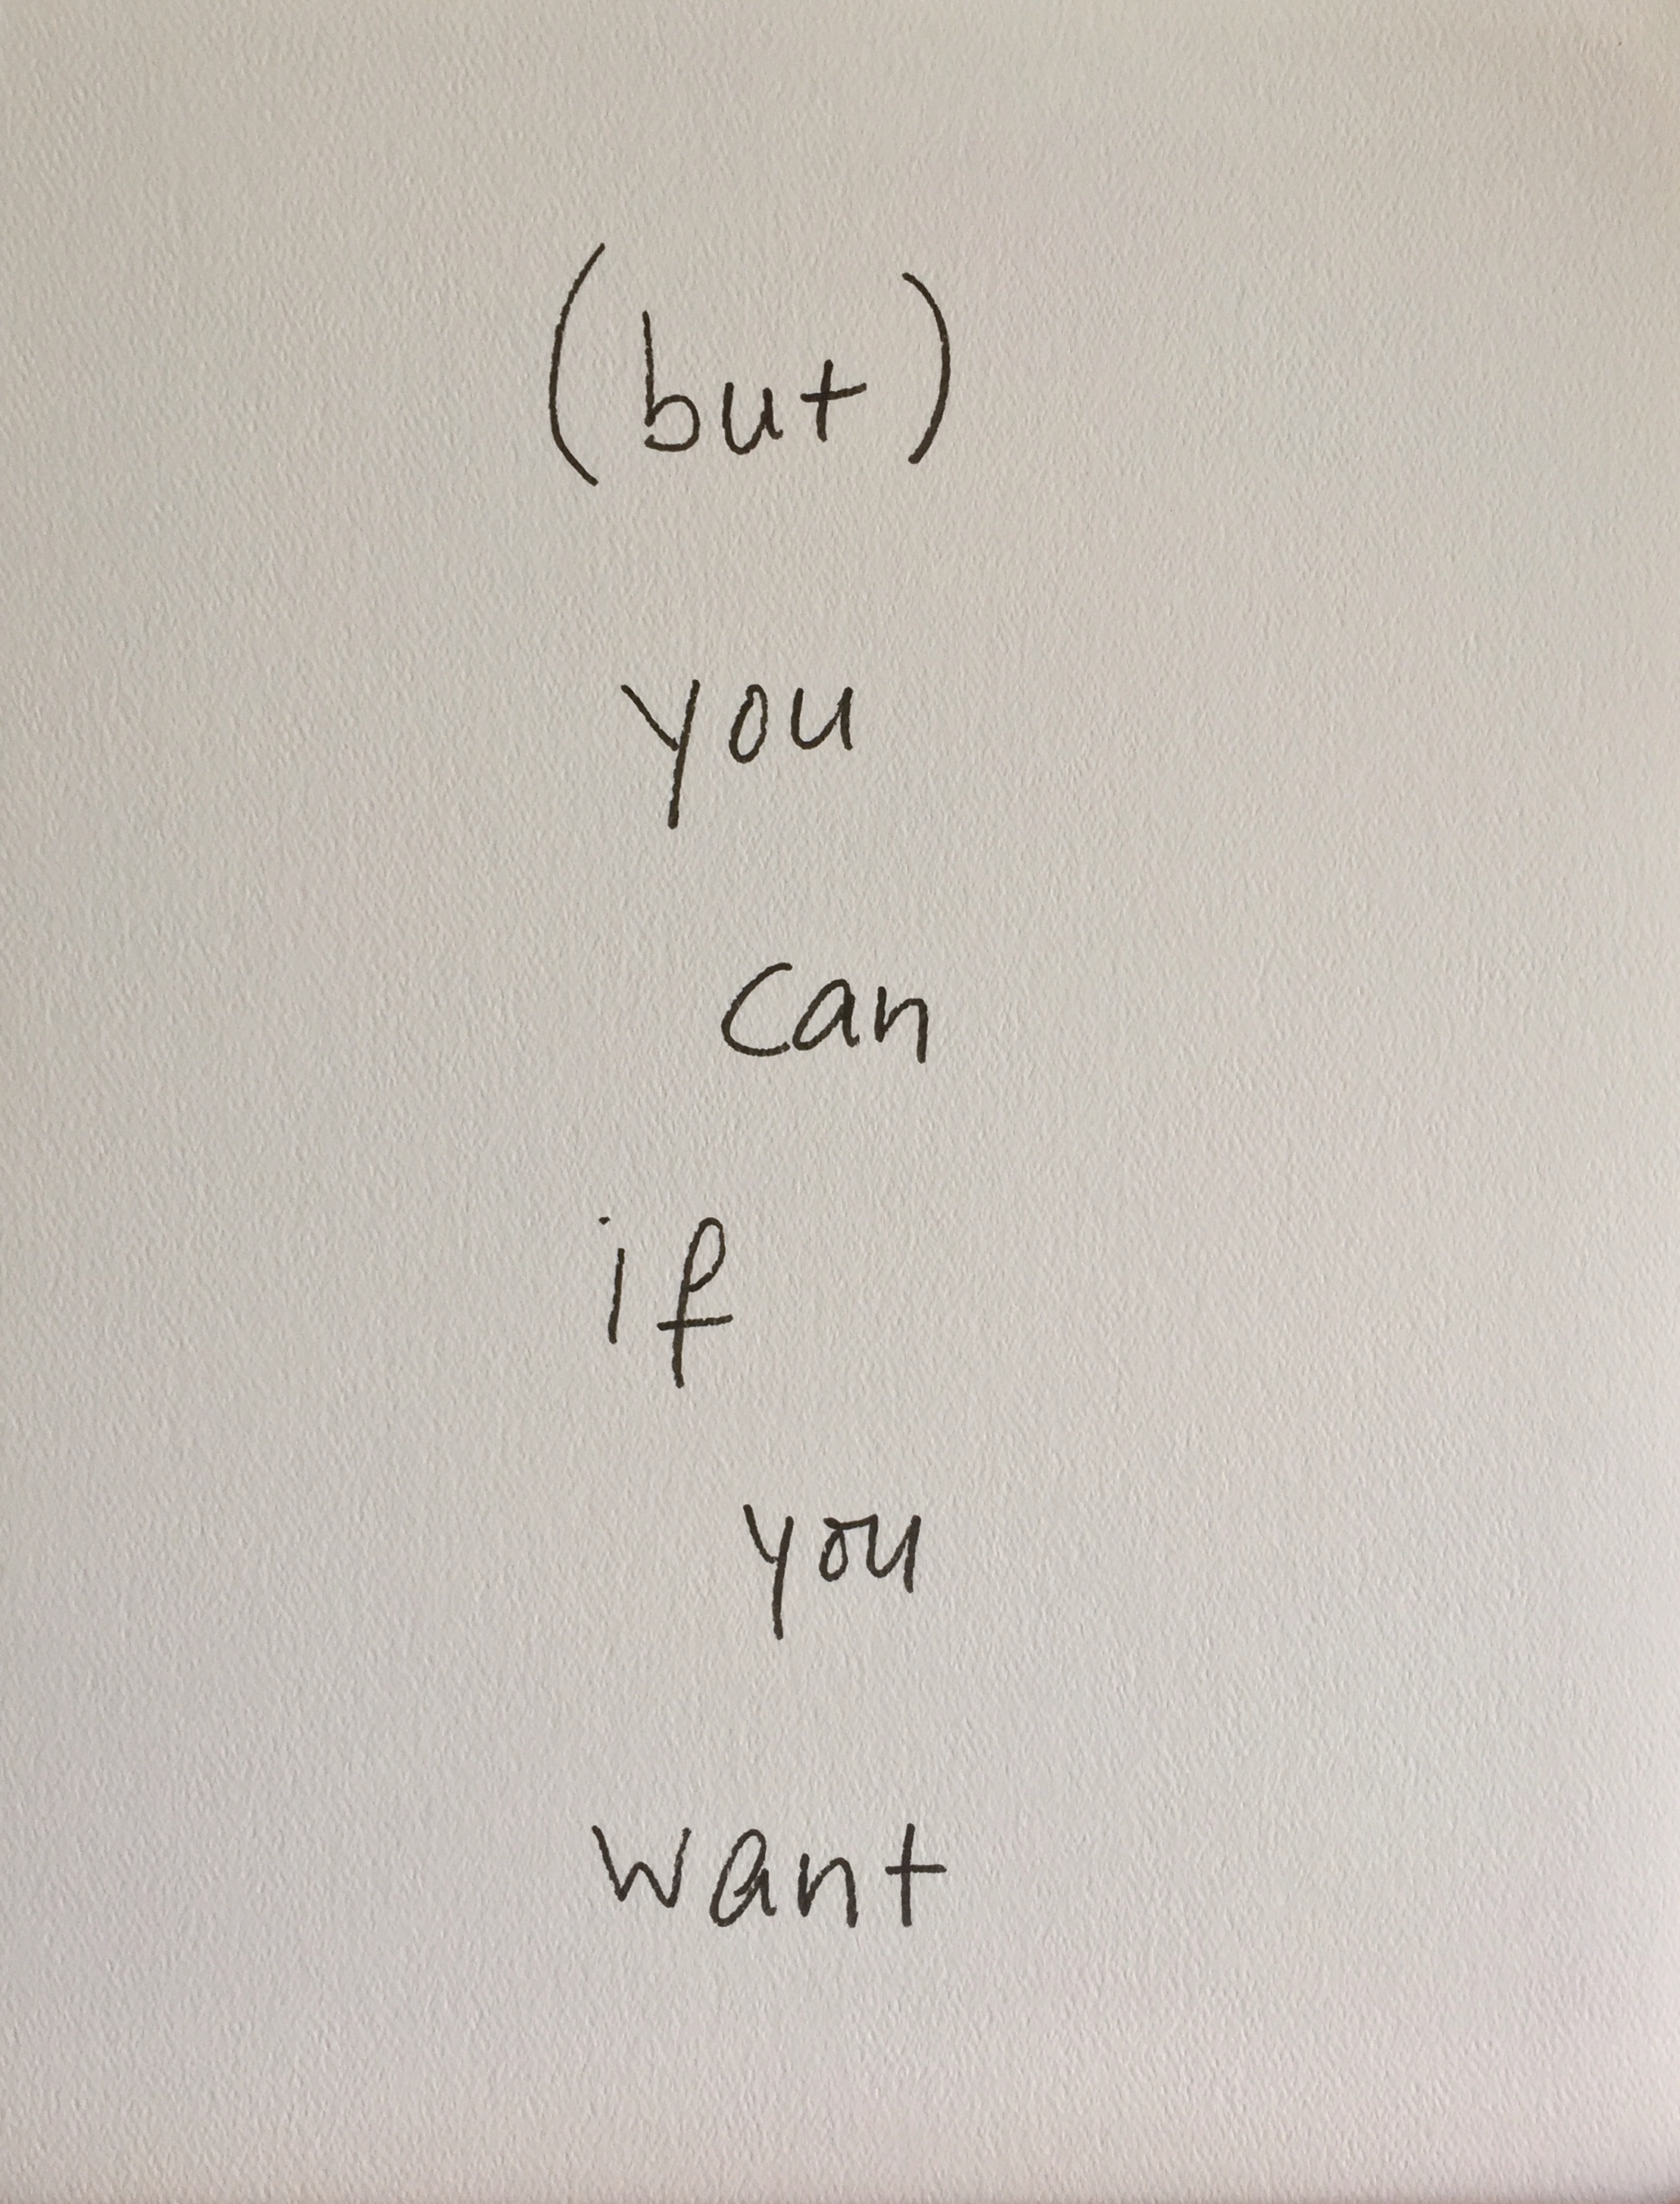 (but)
you
can
if
you
want